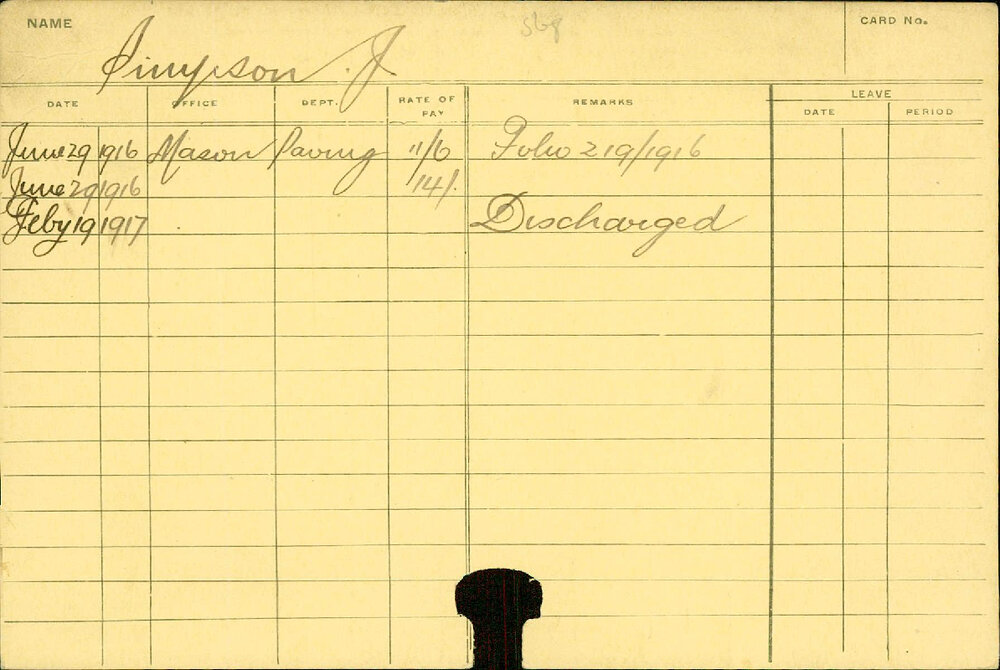 NAME
CARD No.
Simpson. J
DATE OFFICE DEPT. RATE OF PAY REMARKS LEAVE
DATE PERIOD
June 29 1916 Mason Paving 11/6 Folio 219/1916
June 29 1916 14/.
Feby 19 1917 Discharged